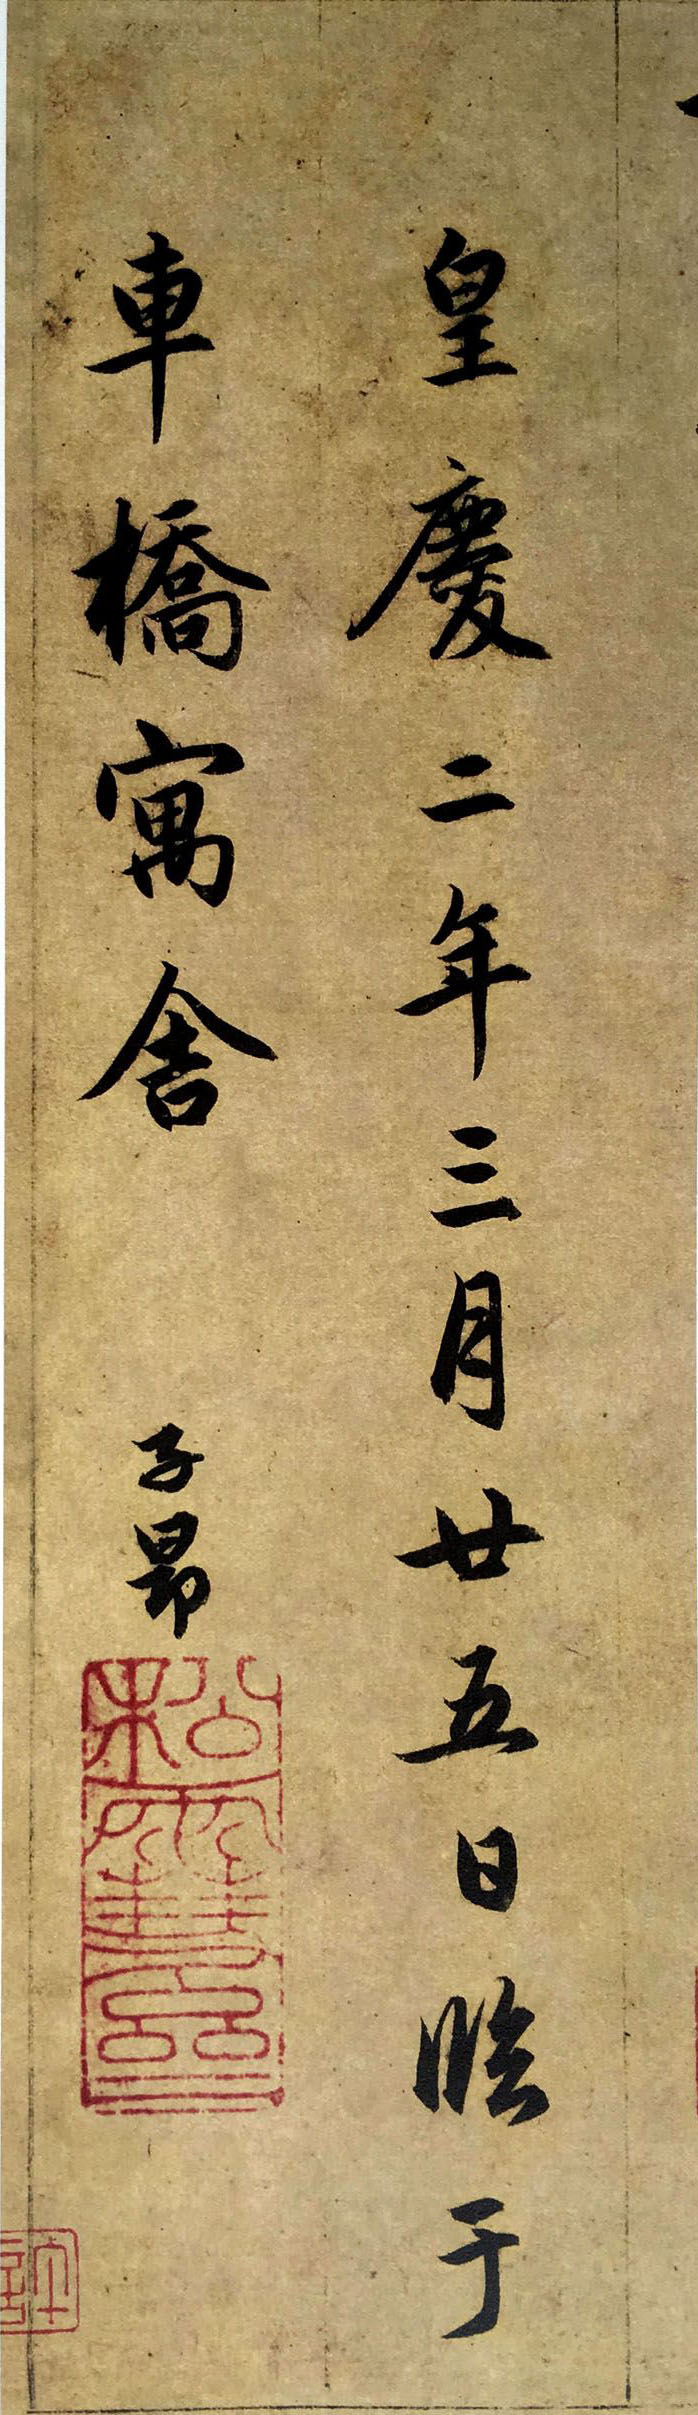 皇慶二年三月廿五日臨于
車橋寓舍
子昂
松雪齋